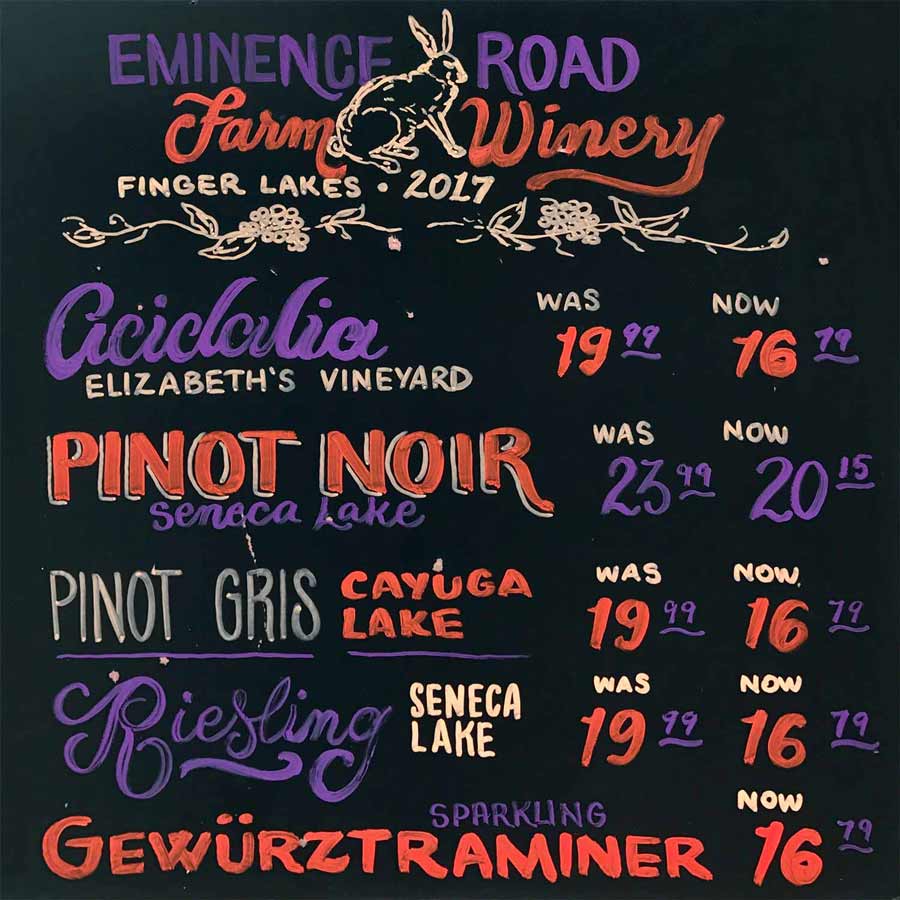 EMINENCE ROAD
Farm Winery
FINGER LAKES • 2017
Acidalia WAS 19 99 NOW 16 79
ELIZABETH'S VINEYARD
PINOT NOIR WAS 23 99 NOW 20 15
Seneca Lake
PINOT GRIS CAYUGA LAKE WAS 19 99 NOW 16 79
Riesling SENECA LAKE WAS 19 99 NOW 16 79
SPARKLING
GEWÜRZTRAMINER NOW 16 79